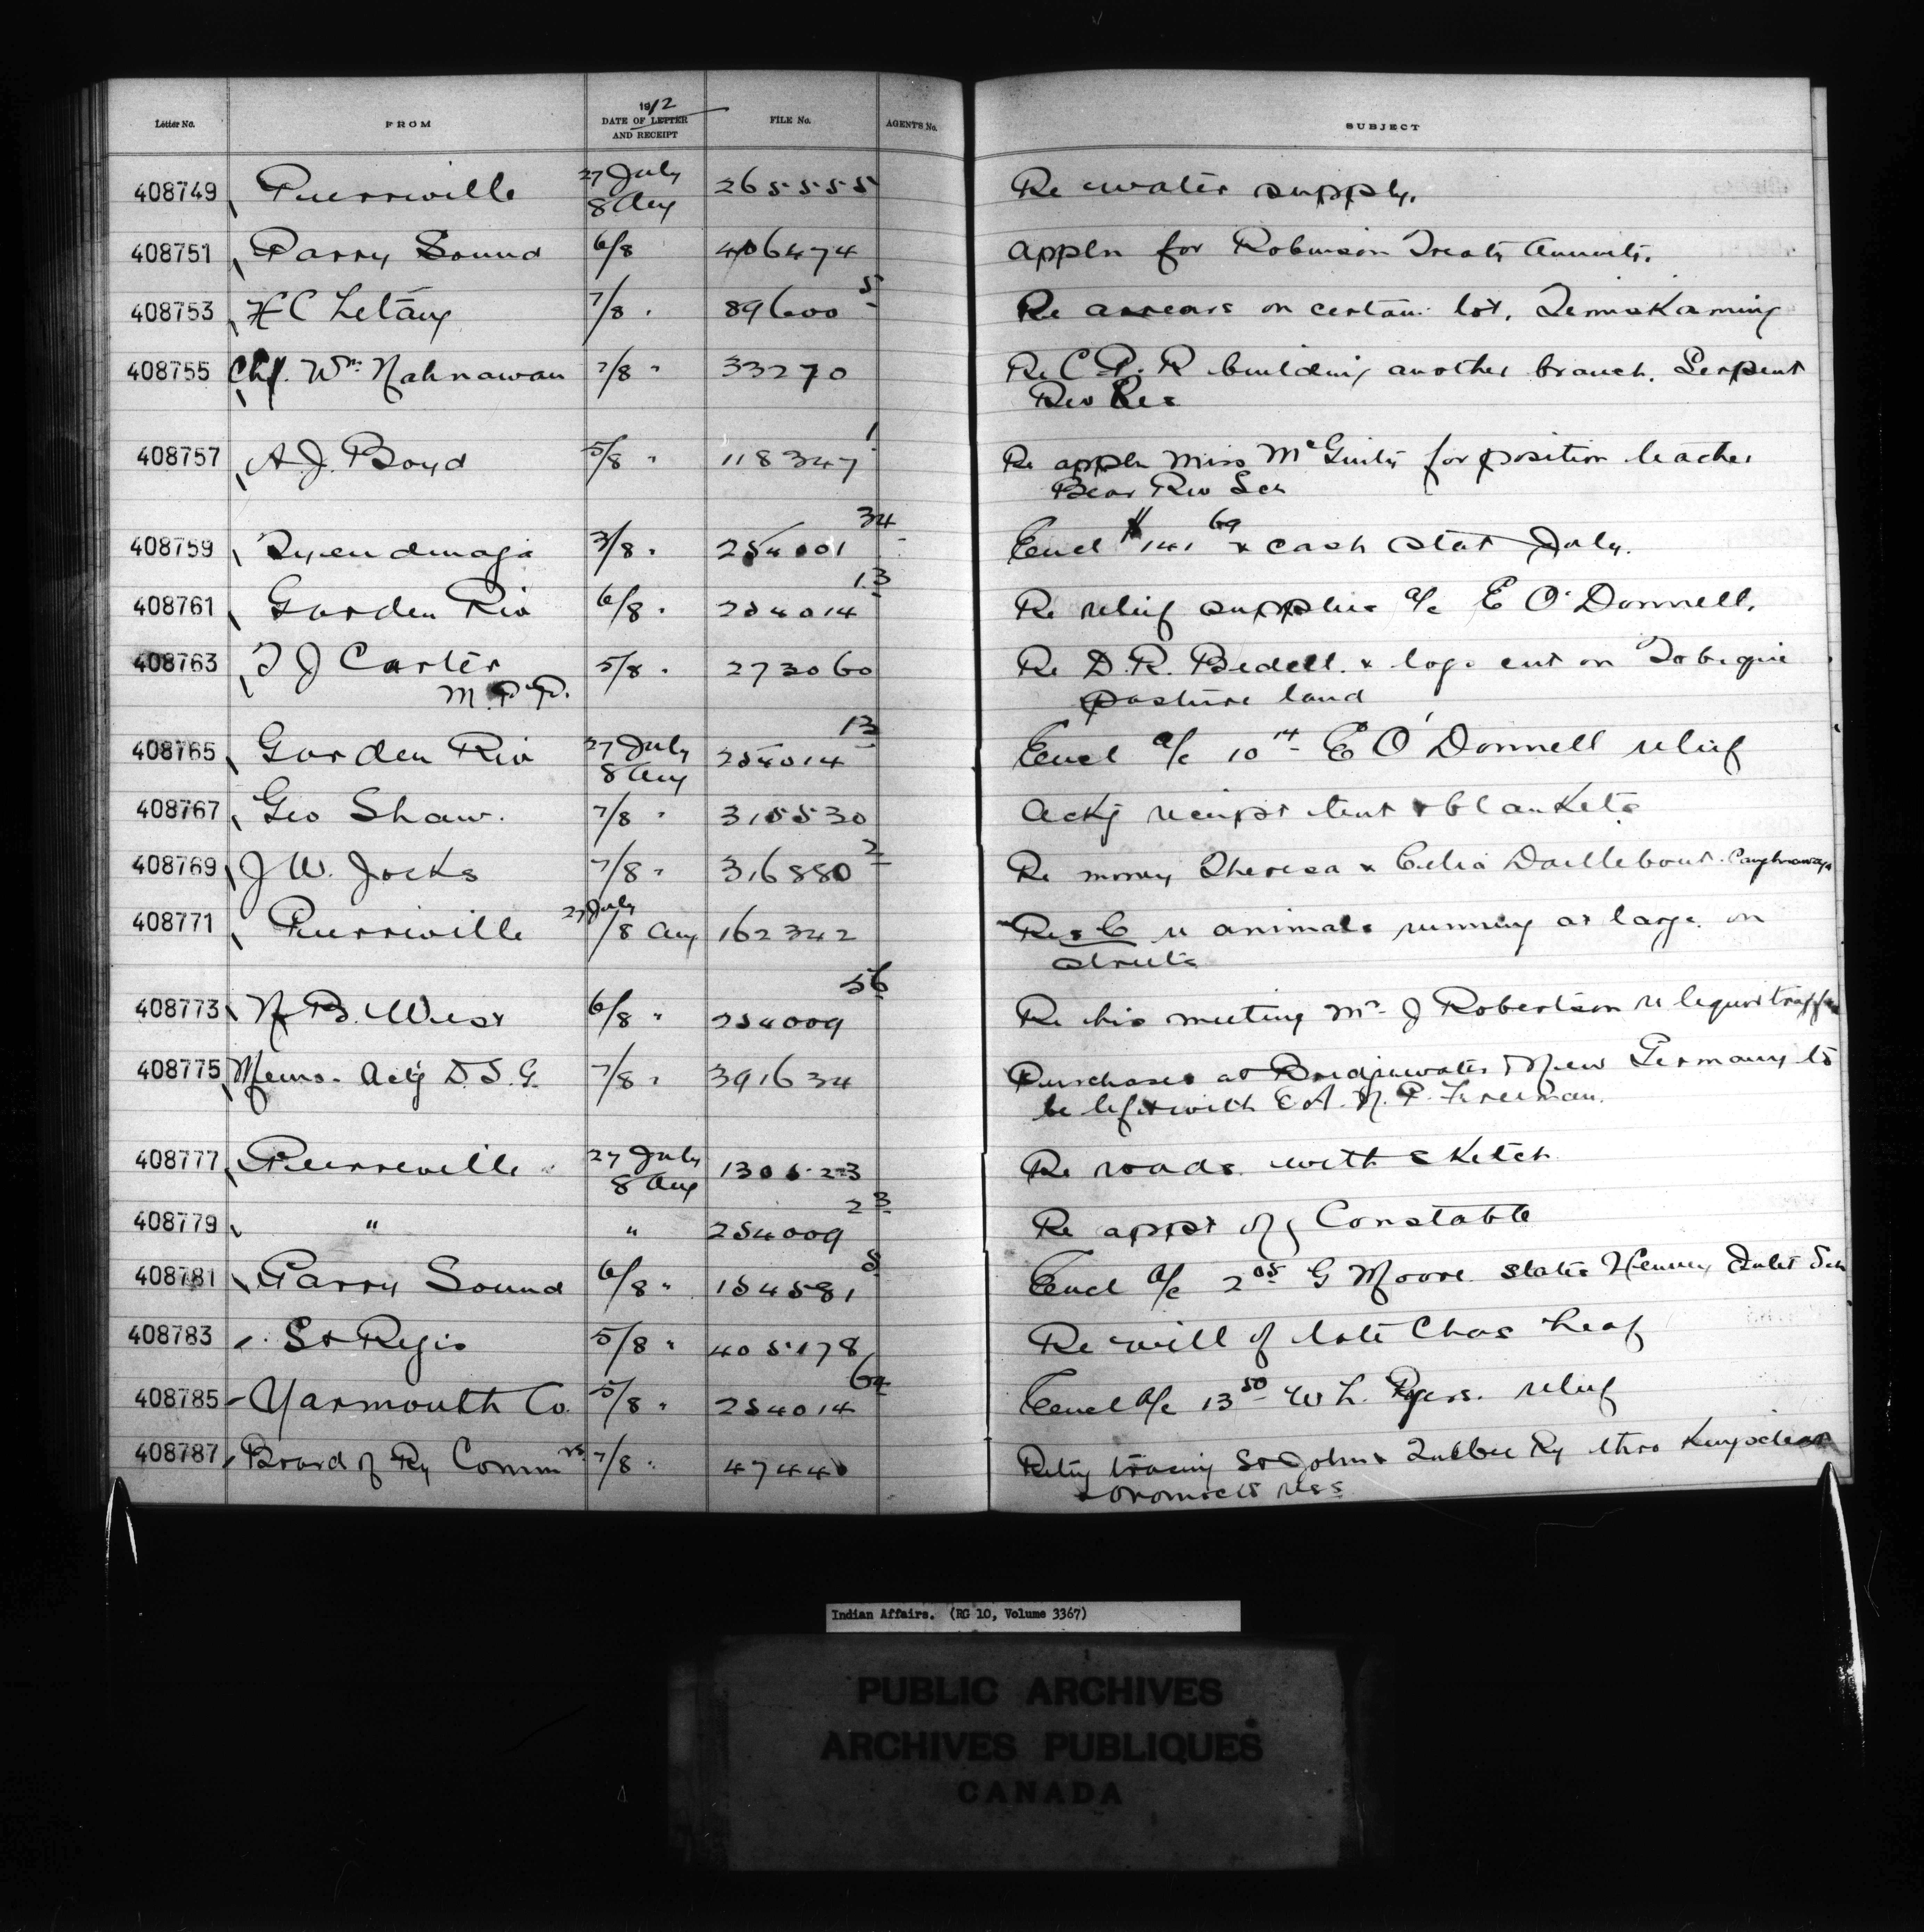 1912
Letter No. FROM DATE OF LETTER AND RECEIPT FILE No. AGENTS No. SUBJECT
408749 Pierreville 27 July 8 Aug 265555 Re water supply.
408751 Parry Sound 6/8 406474 appln for Robinson Treaty Annuity.
408753 H C Letang 7/8 " 89600 5 Re arrears on certain lot, Temiskaming
408755 Chf. Wm. Nahnawan 7/8 " 33270 Re C.P.R building another branch. Serpent
Riv Res
408757 A. J. Boyd 5/8 " 118347 1 Re appln Miss McGuity for position teacher
Bear Riv Sch
408759 Tyendinaga 3/8 " 254001 34 Encl $141 69 & cash stat July.
408761 Garden Riv 6/8 " 254014 13 Re relief supplies a/c E O'Donnell.
408763 T J Carter 5/8 " 273060 Re D. R. Bedell. & logs cut on Tobique
M.P.P. pasture land
408765 Garden Riv 27 July 8 Aug 254014 13 Encl a/c 10 14 E O'Donnell relief
408767 Geo Shaw. 7/8 " 315530 Ackg receipt tent & blankets
408769 J W. Jocks 7/8 " 316880 2 Re money Theresa & Celia Daillebout. Caughnawaga
408771 Pierreville 27 July /8 Aug 162342 Res C re animals running at large on
streets
408773 N. B. West 6/8 " 254009 56 Re his meeting Mr J Robertson re liquor traffic
408775 Memo. Actg D. S. G. 7/8 " 391634 Purchases at Bridgewater & New Germany to
be left with C.A. N. P. Freeman.
408777 Pierreville 27 July 8 Aug 130623 Re roads with sketch
408779 " " 254009 23 Re appt of Constable
408781 Parry Sound 6/8 " 154581 8 Encl a/c 2 05 G Moore slates Henvey Inlet Sch
408783 St Regis 5/8 " 405178 Re will of late Chas Leaf
408785 Yarmouth Co. 5/8 " 254014 64 Encl a/c 13 50 W L. Ryers. relief
408787 Board of Ry Commrs. 7/8 " 47440 Retg tracing St John & Quebec Ry thro Kingsclear
& Oromocto ress
Indian Affairs. (RG 10, Volume 3367)
PUBLIC ARCHIVES
ARCHIVES PUBLIQUES
CANADA